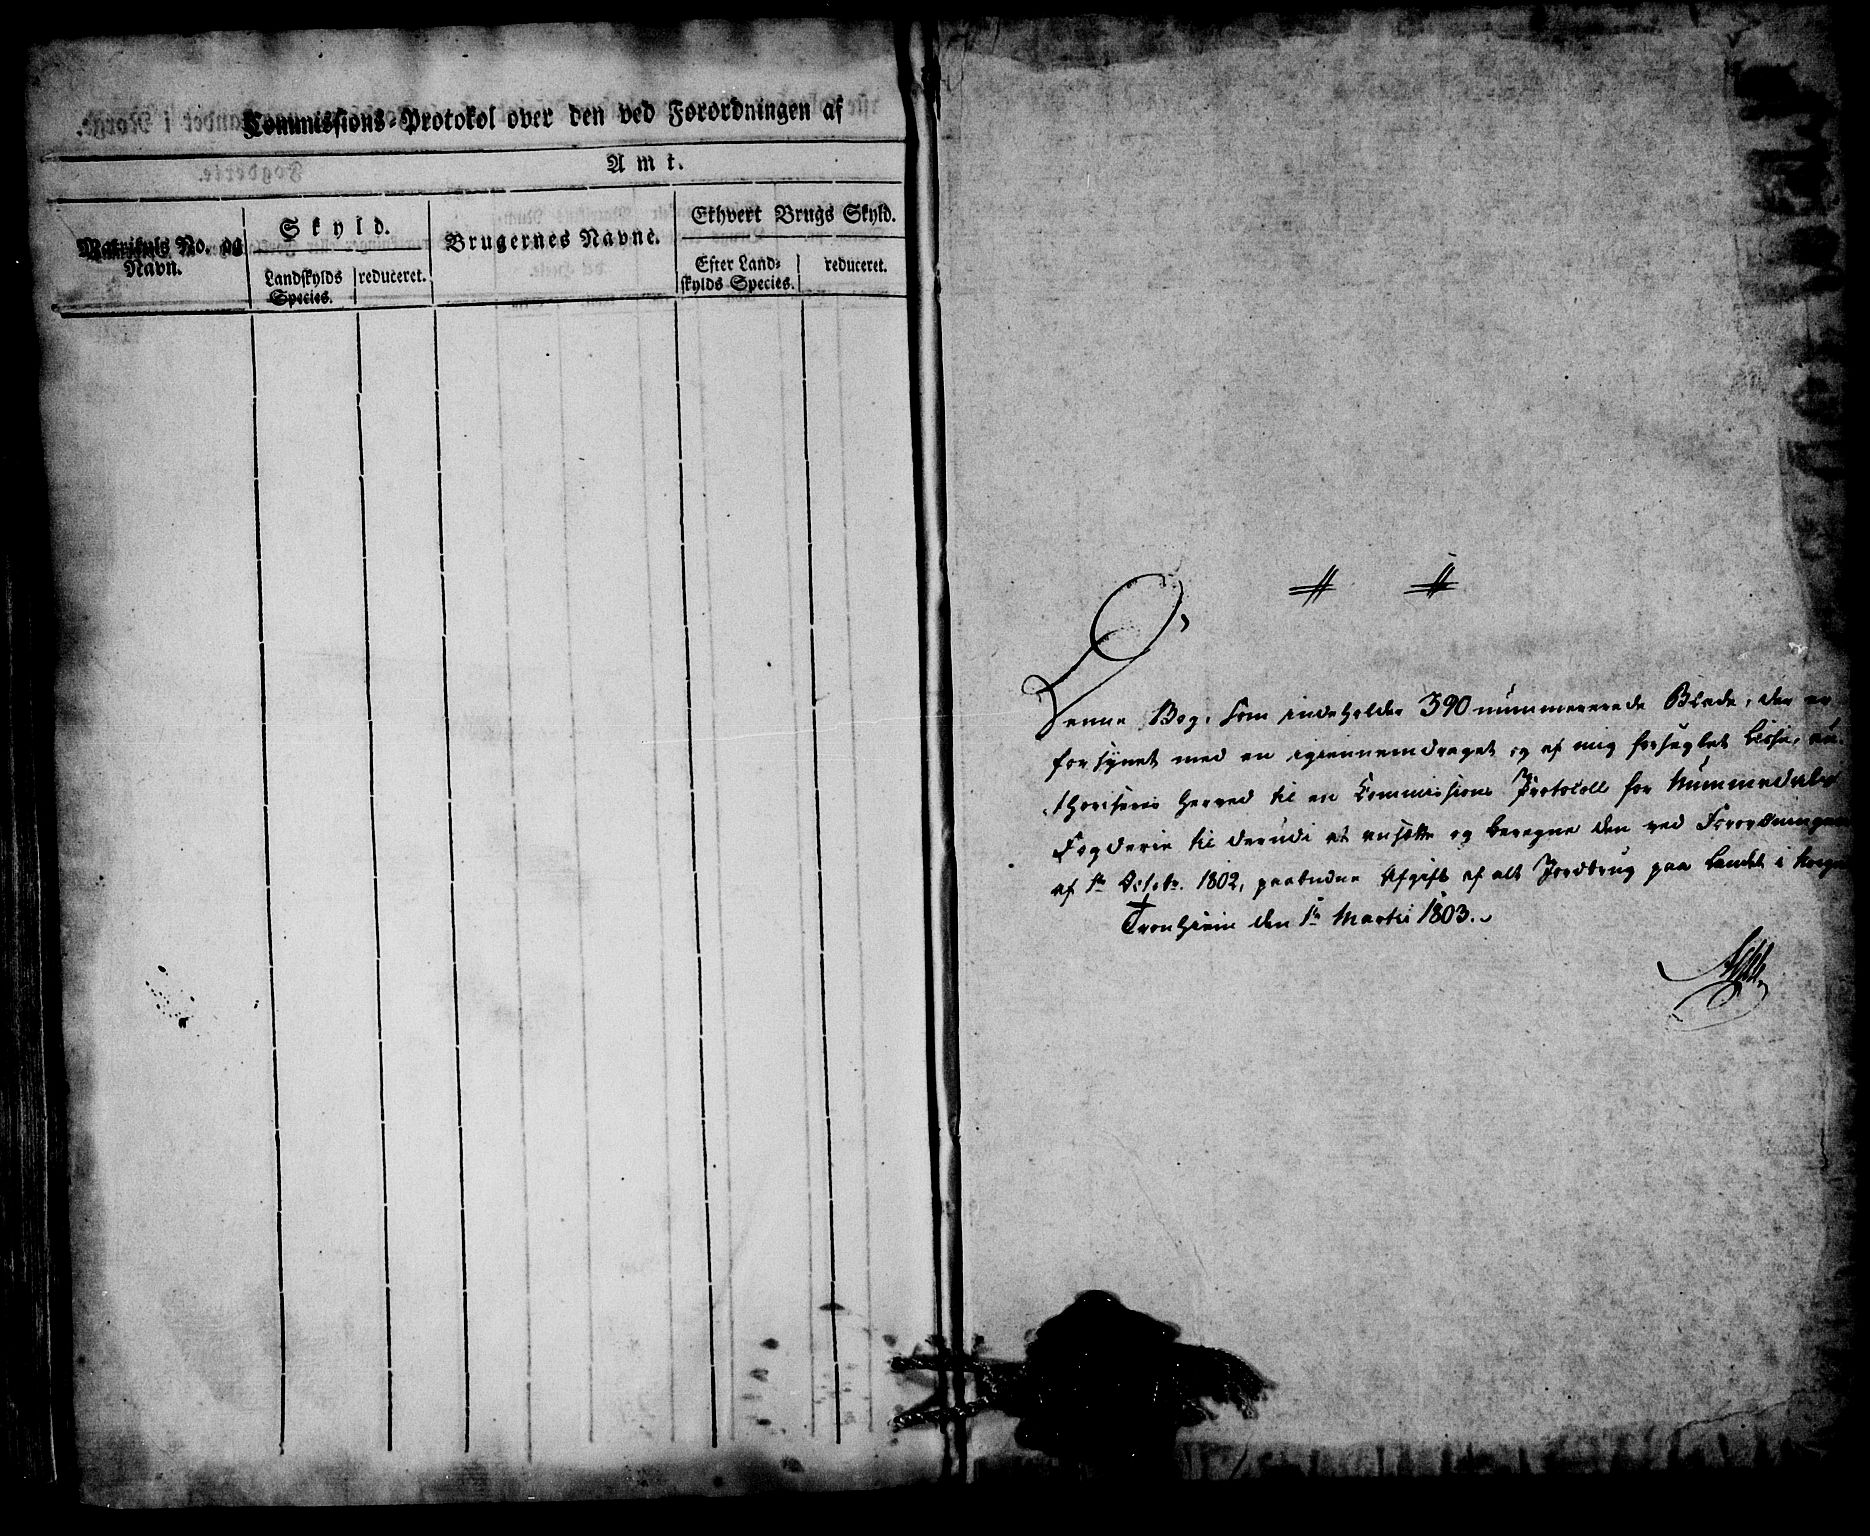 Commissions-Protokol over den ved Forordningen af
Amt.
Matrikuls No. og
Navn.
Skyld.
Landskylds
Species.
reduceret.
Brugernes Navne.
Ethvert Brugs Skyld.
Efter Land-
skylds Species.
reduceret.
Denne Bog, som indeholder 390 nummererede Blade, der er
forsynet med en igiennemdraget og af mig forseglet Lisse, au-
thoriseres herved til en Commissions Protocoll for Nummedahls
Fogderie til derudi at ansætte og beregne den ved Forordningen
af 1te Octobr. 1802, paabudne Afgift af alt Jordbrug paa Landet i Norge
Tronhiem den 1te Martii 1803.